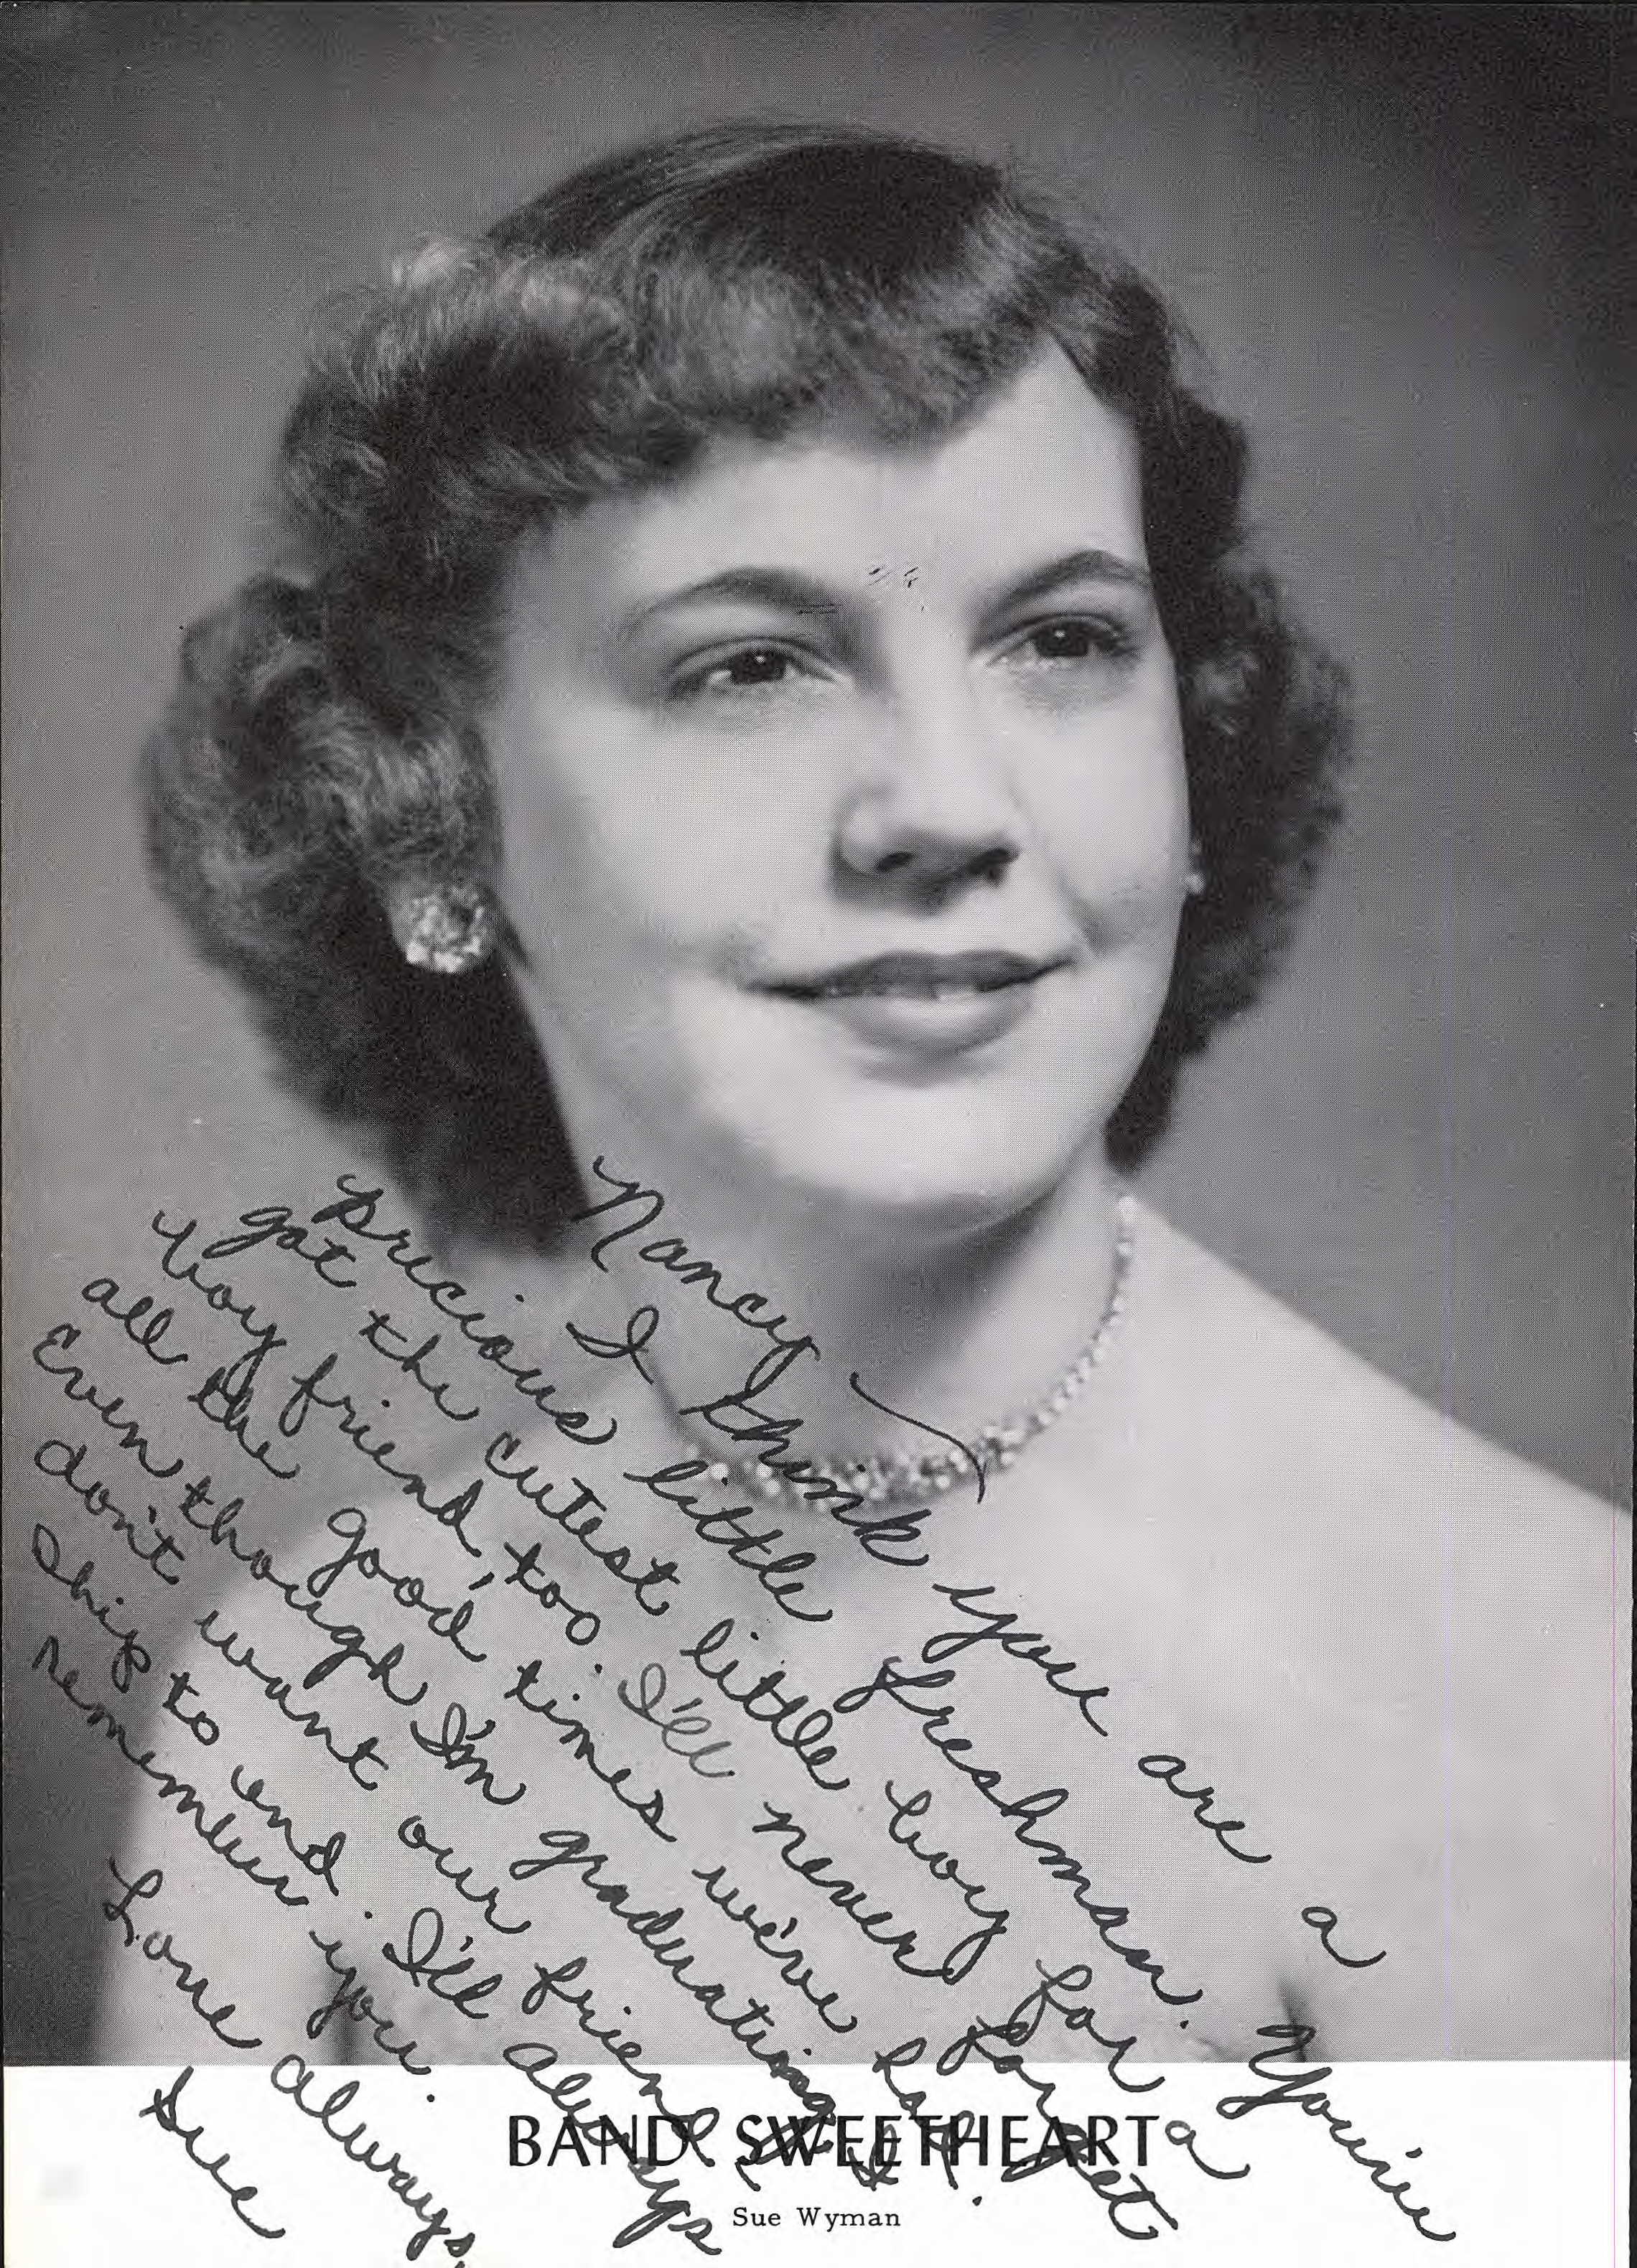 Nancy,
I think you are a
precious little freshman. You've
got the cutest little boy for a
boy friend, too. I'll never forget
all the good times we've had.
Even though I'm graduating, I
don't want our friend-
ship to end. I'll always
remember you.
Love always,
Sue
BAND SWEETHEART
Sue Wyman